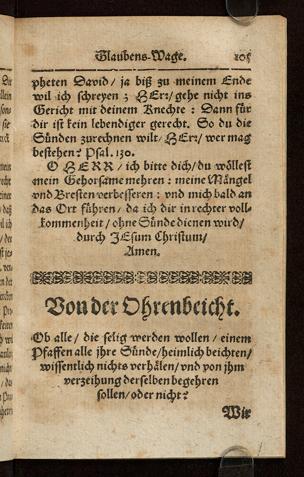 Glaubens-Wage. 105
pheten David/ ja biß zu meinem Ende
wil ich schreyen; HErr/ gehe nicht ins
Gericht mit deinem Knechte: Dann für
dir ist kein lebendiger gerecht. So du die
Sünden zurechnen wilt/ HErr/ wer mag
bestehen? Psal. 130.
O HERR/ ich bitte dich/ du wöllest
mein Gehorsame mehren: meine Mängel
vnd Bresten verbesseren: vnd mich bald an
das Ort führen/ da ich dir in rechter voll-
kommenheit/ ohne Sünde dienen wird/
durch JEsum Christum/
Amen.
Von der Ohrenbeicht.
Ob alle/ die selig werden wollen/ einem
Pfaffen alle jhre Sünde/ heimlich beichten/
wissentlich nichts verhälen/ vnd von jhm
verzeihung derselben begehren
sollen/ oder nicht?
Wir